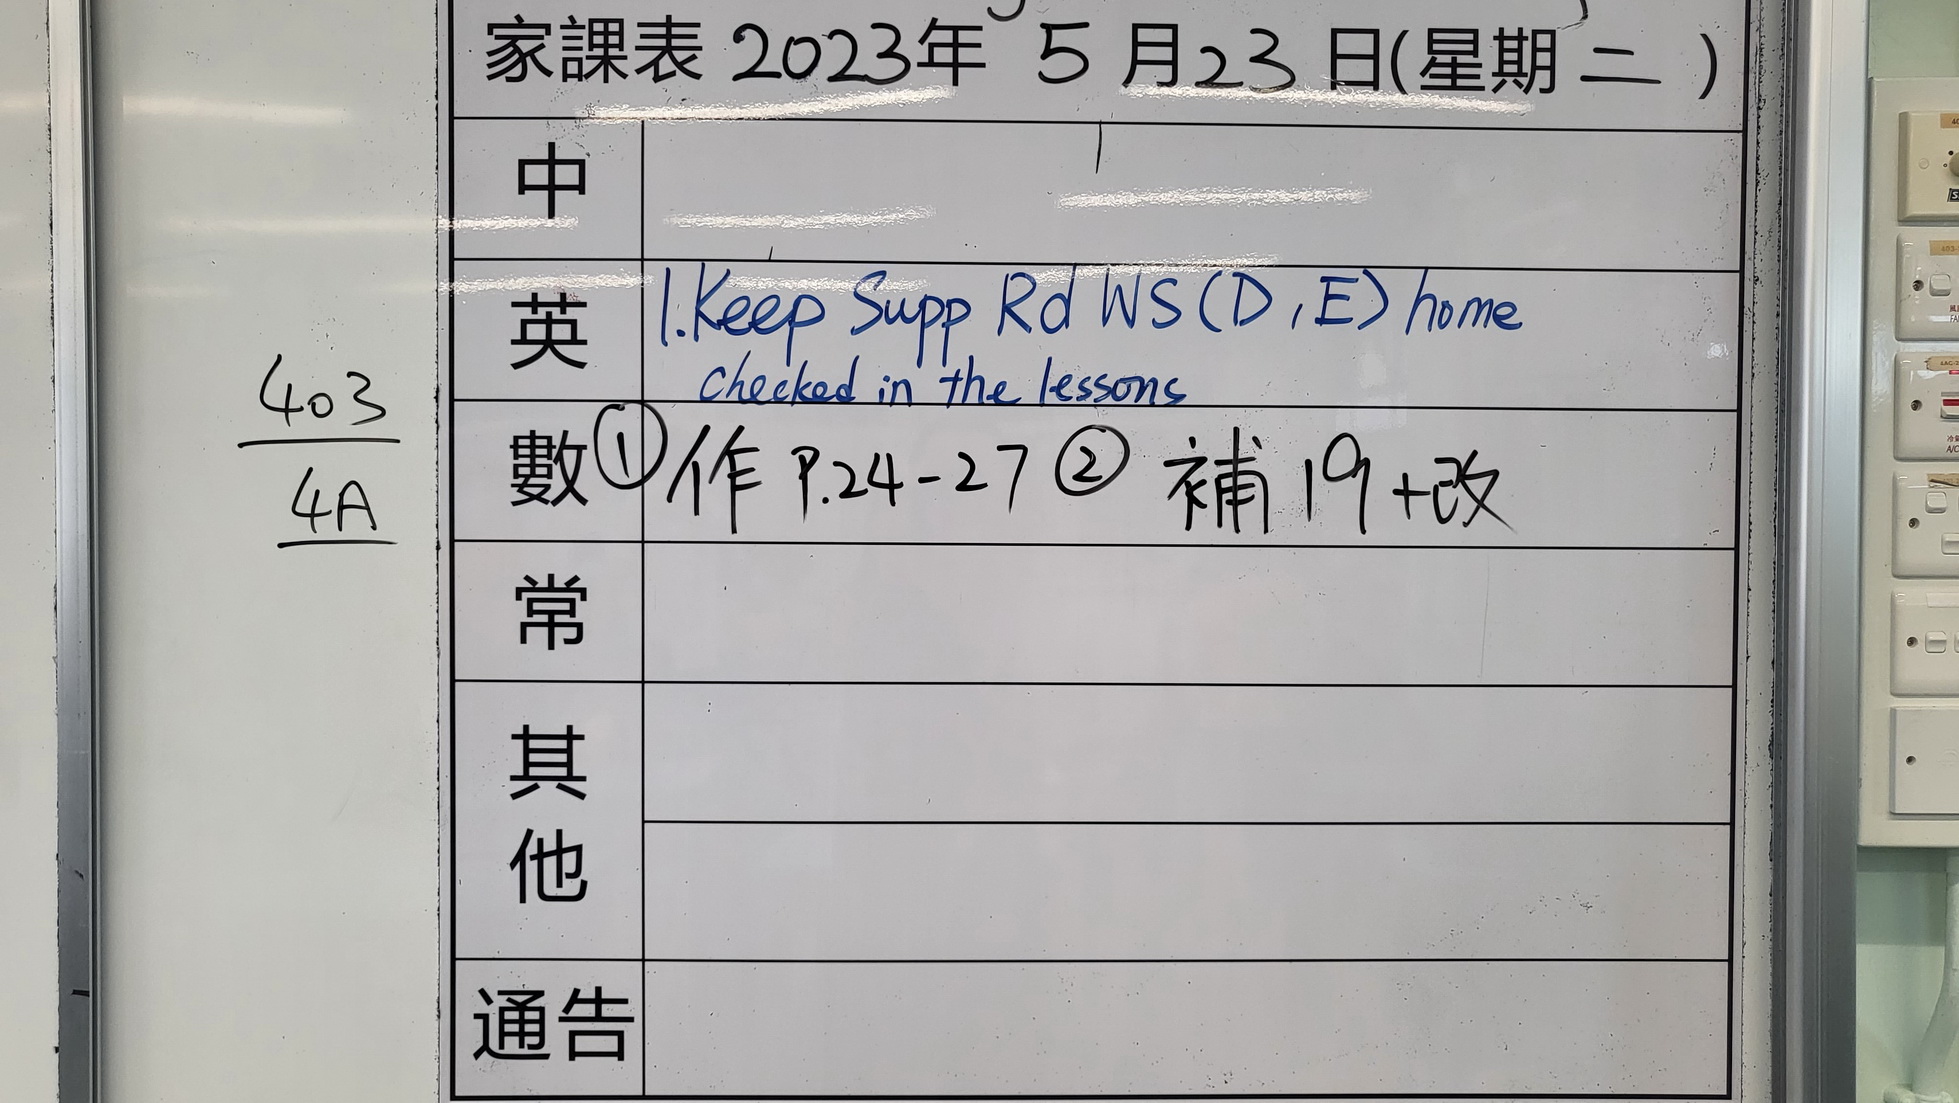 家課表 2023年 5月23日(星期二)
中
英 1. Keep Supp Rd WS (D, E) home
checked in the lessons
數 ① 作 P.24-27 ② 補19+改
常
其他
通告
403
4A